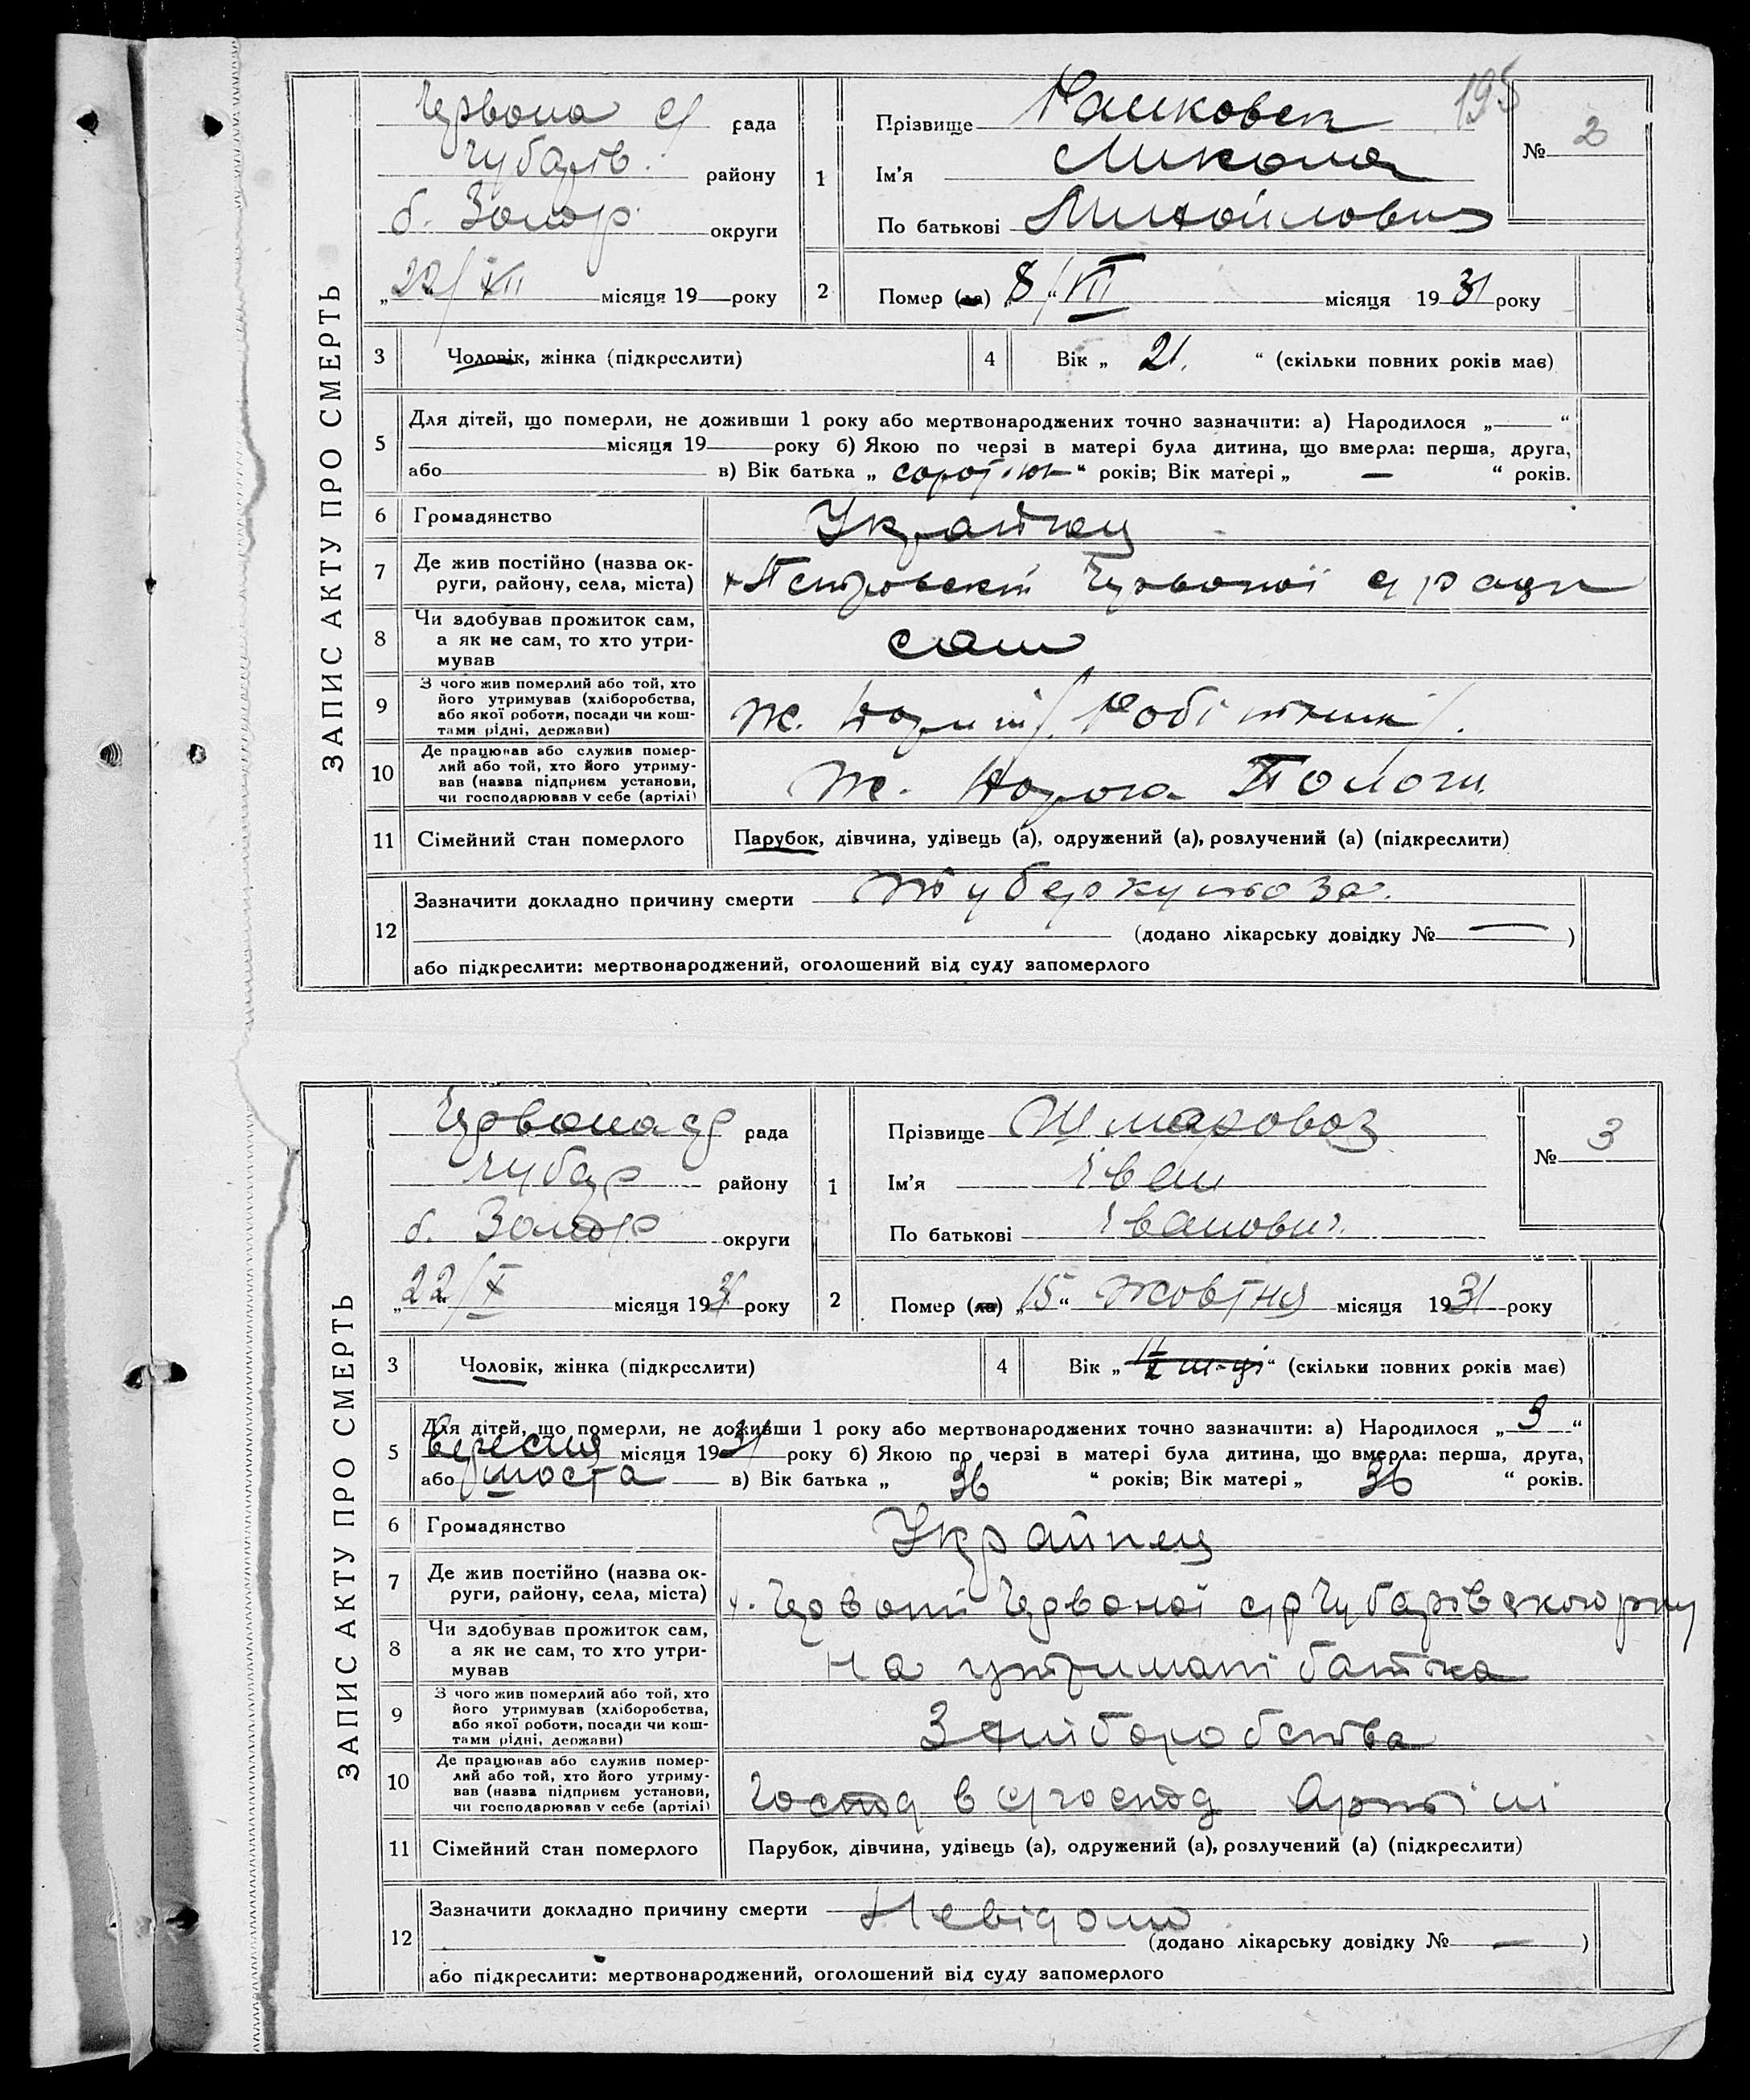 195
ЗАПИС АКТУ ПРО СМЕРТЬ
Червона с/ рада
Чубарів. району
б. Запор округи
„22/XII місяця 19 — року
1
Прізвище Рашковець
Ім'я Микола
По батькові Михайлович
№ 2
2
Помер (ла) „8/“VII місяця 1931 року
3
Чоловік, жінка (підкреслити)
4
Вік „ 21. “ (скільки повних років має)
5
Для дітей, що померли, не доживши 1 року або мертвонароджених точно зазначити: а) Народилося „—“
— місяця 19 — року б) Якою по черзі в матері була дитина, що вмерла: перша, друга,
або — в) Вік батька „ “ років; Вік матері „ — “ років.
6
Громадянство
Українец
7
Де жив постійно (назва ок-
руги, району, села, міста)
х Петровскій Червоної с ради
8
Чи здобував прожиток сам,
а як не сам, то хто утри-
мував
сам
9
З чого жив померлий або той, хто
його утримував (хліборобства,
або якої роботи, посади чи кош-
тами рідні, держави)
Ж. /Робітник/.
10
Де працював або служив помер-
лий або той, хто його утриму-
вав (назва підприєм установи,
чи господарював у себе (артілі)
Ж. Дорога Пологи
11
Сімейний стан померлого
Парубок, дівчина, удівець (а), одружений (а), розлучений (а) (підкреслити)
12
Зазначити докладно причину смерти туберкульоза.
(додано лікарську довідку № — )
або підкреслити: мертвонароджений, оголошений від суду запомерлого
ЗАПИС АКТУ ПРО СМЕРТЬ
Червона ср рада
Чубар району
б. Запор округи
„22“/X місяця 1931 року
1
Прізвище Шмаровоз
Ім'я Іван
По батькові Іванович.
№ 3
2
Помер (ла) „15“ жовтня місяця 1931 року
3
Чоловік, жінка (підкреслити)
4
Вік „ “ (скільки повних років має)
5
Для дітей, що померли, не доживши 1 року або мертвонароджених точно зазначити: а) Народилося „ 3 “
вересня місяця 1931 року б) Якою по черзі в матері була дитина, що вмерла: перша, друга,
або шоста в) Вік батька „ 36 “ років; Вік матері „ 36 “ років.
6
Громадянство
Українец
7
Де жив постійно (назва ок-
руги, району, села, міста)
х. Червоні Червоної ср Чубарівского рну
8
Чи здобував прожиток сам,
а як не сам, то хто утри-
мував
на утримані батька
9
З чого жив померлий або той, хто
його утримував (хліборобства,
або якої роботи, посади чи кош-
тами рідні, держави)
З хліборобства
10
Де працював або служив помер-
лий або той, хто його утриму-
вав (назва підприєм установи,
чи господарював у себе (артілі)
Господ в с/господ Артілі
11
Сімейний стан померлого
Парубок, дівчина, удівець (а), одружений (а), розлучений (а) (підкреслити)
12
Зазначити докладно причину смерти Невідомо
(додано лікарську довідку № — )
або підкреслити: мертвонароджений, оголошений від суду запомерлого